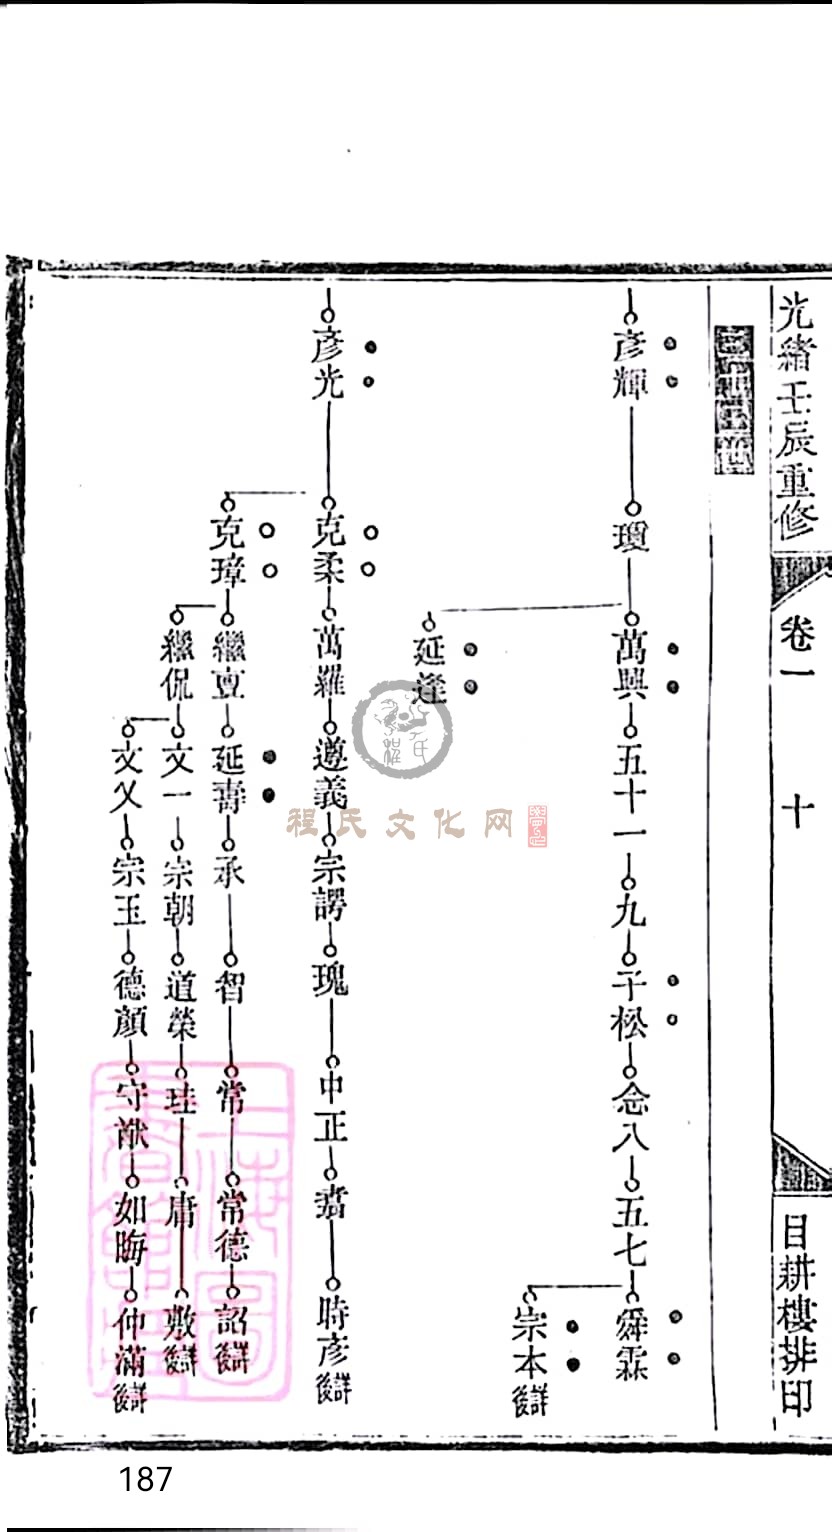 光緒壬辰重修
卷一
十
目耕樓排印
彥輝
瓊
萬興
五十一
九
子松
念八
五七
舜霖
宗本
詳後
延逢
彥光
克柔
萬羅
遵義
宗諤
瑰
中正
時彥
詳後
克璋
繼亶
延壽
承
智
常
常德
詔
詳後
繼侃
文一
宗朝
道榮
珪
庸
敷
詳後
文乂
宗玉
德顏
守猷
如晦
仲滿
詳後
程氏文化网
187